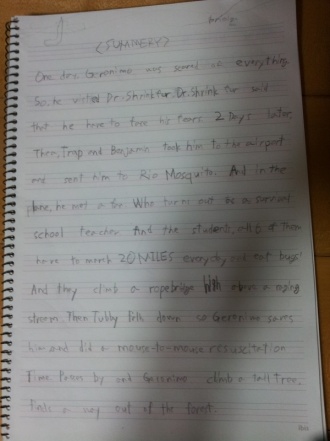 <SUMMERY>
One day, Geronimo was scared of everything.
So, he visited Dr. Shrinkfur. Dr. Shrink fur said
that he have to face his fears. 2 Days later,
Then, Trap and Benjamin took him to the airport
and sent him to Rio Mosquito. And in the
plane, he met a Who turns out as a survival
school teacher. And the students, all of Them
have to march 20 MILES everyday and eat bugs!
And they climb a ropebridge high above a raging
stream. Then Tubby Pells down so Geronimo saves
him and did a mouse-to-mouse resuscitation
Time Passes by and Geronimo climb a tall tree,
finds a way out of the forest.